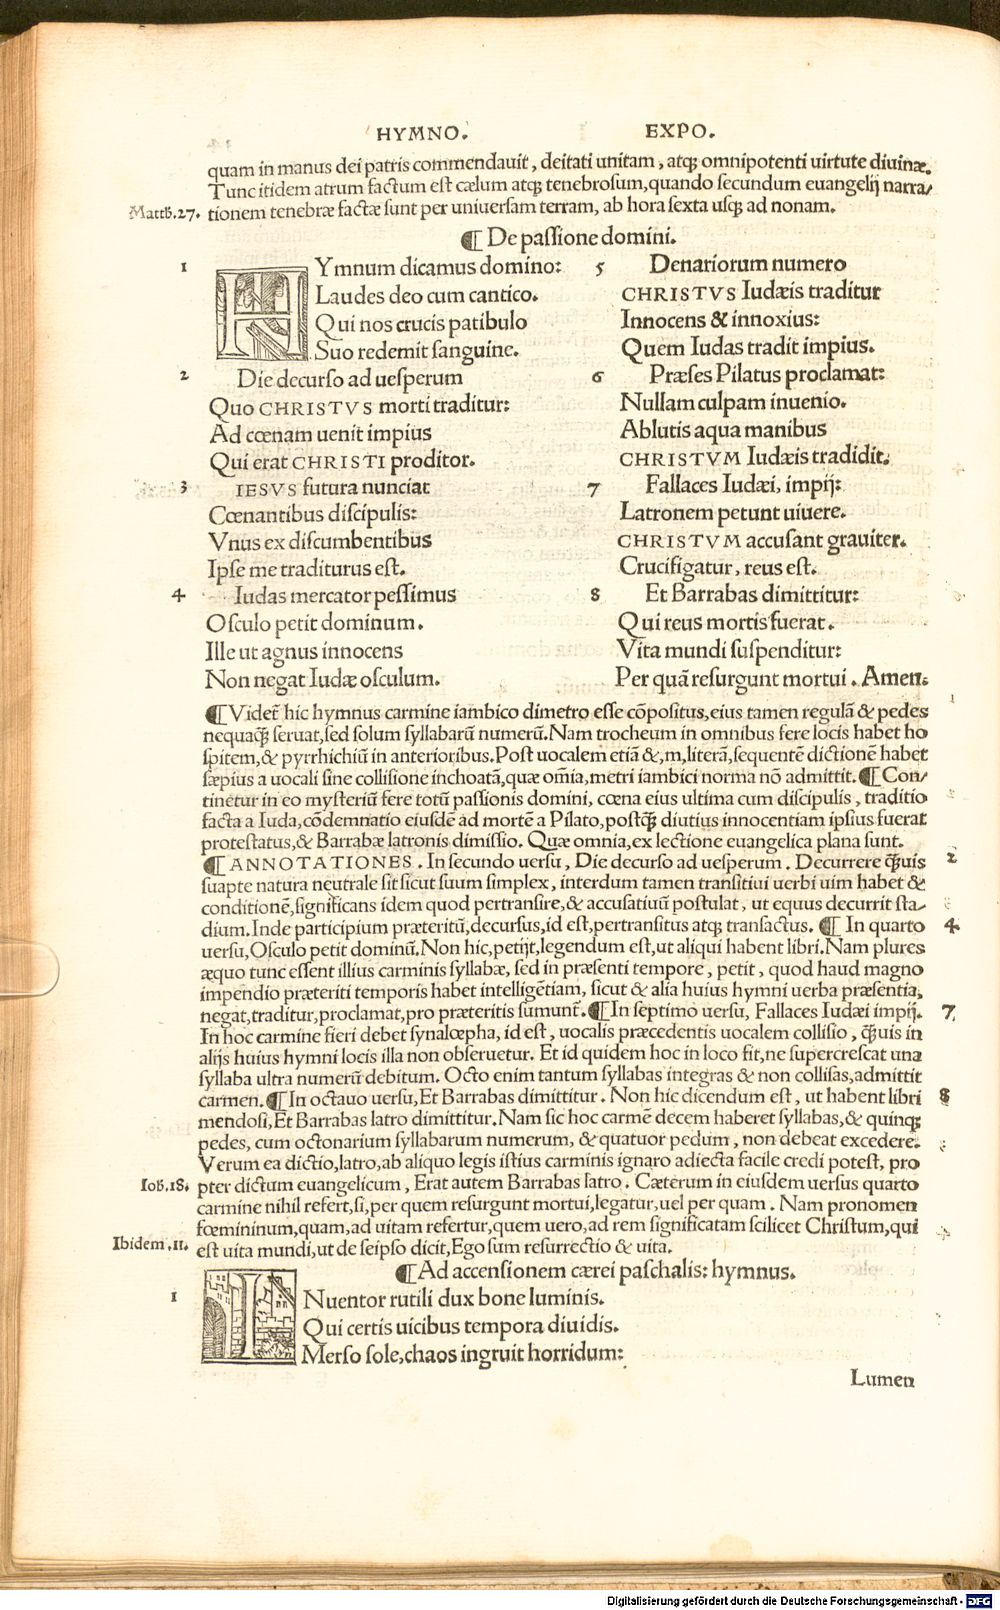 HYMNO. EXPO.
quam in manus dei patris commendauit, deitati unitam, atqꝫ omnipotenti uirtute diuinæ.
Tunc itidem atrum factum est cælum atqꝫ tenebrosum, quando secundum euangelij narra/
Matth.27. tionem tenebræ factæ sunt per uniuersam terram, ab hora sexta usqꝫ ad nonam.
¶ De passione domini.
1 HYmnum dicamus domino:
Laudes deo cum cantico.
Qui nos crucis patibulo
Suo redemit sanguine.
2 Die decurso ad uesperum
Quo CHRISTVS morti traditur:
Ad cœnam uenit impius
Qui erat CHRISTI proditor.
3 IESVS futura nunciat
Cœnantibus discipulis:
Vnus ex discumbentibus
Ipse me traditurus est.
4 Iudas mercator pessimus
Osculo petit dominum.
Ille ut agnus innocens
Non negat Iudæ osculum.
5 Denariorum numero
CHRISTVS Iudæis traditur
Innocens & innoxius:
Quem Iudas tradit impius.
6 Præses Pilatus proclamat:
Nullam culpam inuenio.
Ablutis aqua manibus
CHRISTVM Iudæis tradidit.
7 Fallaces Iudæi, impij:
Latronem petunt uiuere.
CHRISTVM accusant grauiter.
Crucifigatur, reus est.
8 Et Barrabas dimittitur:
Qui reus mortis fuerat.
Vita mundi suspenditur:
Per quã resurgunt mortui. Amen.
¶ Videt᷑ hic hymnus carmine iambico dimetro esse cõpositus, eius tamen regulã & pedes
nequaqꝫ seruat, sed solum syllabarũ numerũ. Nam trocheum in omnibus fere locis habet ho
spitem, & pyrrhichiũ in anterioribus. Post uocalem etiã &, m, literã, sequentẽ dictionẽ habet
sæpius a uocali sine collisione inchoatã, quæ oм̃ia, metri iambici norma nõ admittit. ¶ Con/
tinetur in eo mysteriũ fere totũ passionis domini, cœna eius ultima cum discipulis, traditio
facta a Iuda, cõdemnatio eiusdẽ ad mortẽ a Pilato, postqꝫ diutius innocentiam ipsius fuerat
protestatus, & Barrabæ latronis dimissio. Quæ omnia, ex lectione euangelica plana sunt.
¶ ANNOTATIONES. In secundo uersu, Die decurso ad uesperum. Decurrere qꝫuis 2
suapte natura neutrale sit sicut suum simplex, interdum tamen transitiui uerbi uim habet &
conditionẽ, significans idem quod pertransire, & accusatiuũ postulat, ut equus decurrit sta/
dium. Inde participium præteritũ, decursus, id est, pertransitus atqꝫ transactus. ¶ In quarto 4
uersu, Osculo petit dominũ. Non hic, petijt, legendum est, ut aliqui habent libri. Nam plures
æquo tunc essent illius carminis syllabæ, sed in præsenti tempore, petit, quod haud magno
impendio præteriti temporis habet intelligẽtiam, sicut & alia huius hymni uerba præsentia,
negat, traditur, proclamat, pro præteritis sumunt᷑. ¶ In septimo uersu, Fallaces Iudæi impij. 7
In hoc carmine fieri debet synalœpha, id est, uocalis præcedentis uocalem collisio, qꝫuis in
alijs huius hymni locis illa non obseruetur. Et id quidem hoc in loco fit, ne supercrescat una
syllaba ultra numerũ debitum. Octo enim tantum syllabas integras & non collisas, admittit
carmen. ¶ In octauo uersu, Et Barrabas dimittitur. Non hic dicendum est, ut habent libri 8
mendosi, Et Barrabas latro dimittitur. Nam sic hoc carmẽ decem haberet syllabas, & quinqꝫ
pedes, cum octonarium syllabarum numerum, & quatuor pedum, non debeat excedere.
Verum ea dictio, latro, ab aliquo legis istius carminis ignaro adiecta facile credi potest, pro
Ioh.18. pter dictum euangelicum, Erat autem Barrabas latro. Cæterum in eiusdem uersus quarto
carmine nihil refert, si, per quem resurgunt mortui, legatur, uel per quam. Nam pronomen
fœmininum, quam, ad uitam refertur, quem uero, ad rem significatam scilicet Christum, qui
Ibidem.11. est uita mundi, ut de seipso dicit, Ego sum resurrectio & uita.
¶ Ad accensionem cærei paschalis: hymnus.
1 INuentor rutili dux bone luminis.
Qui certis uicibus tempora diuidis.
Merso sole, chaos ingruit horridum:
Lumen
Digitalisierung gefördert durch die Deutsche Forschungsgemeinschaft - DFG